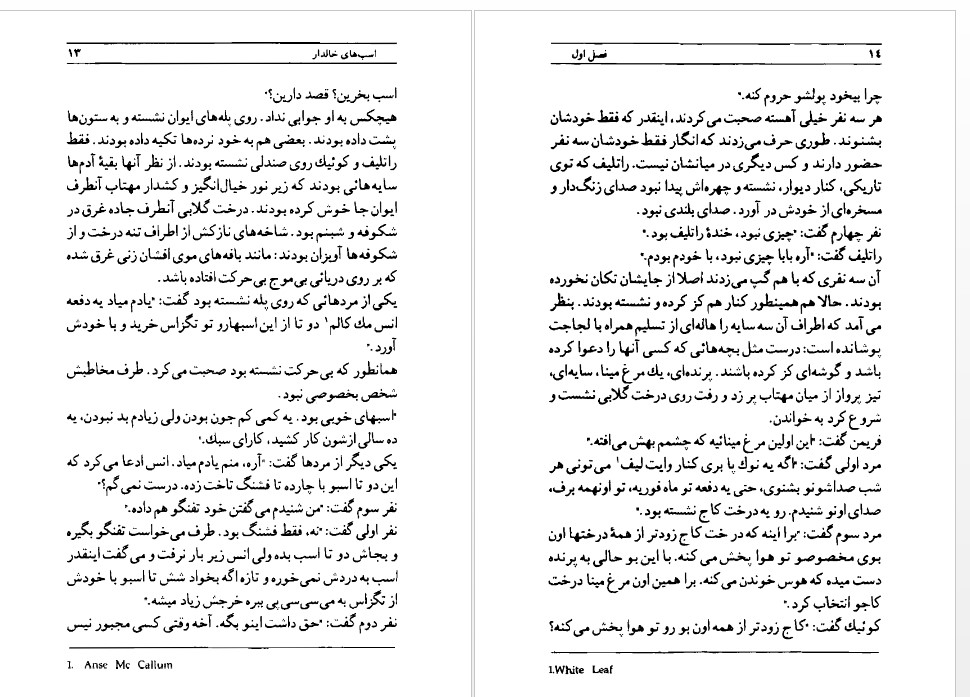 ۱۳
اسب‌های خالدار
اسب بخرین؟ قصد دارین؟"
هیچکس به او جوابی نداد. روی پله‌های ایوان نشسته و به ستون‌ها
پشت داده بودند. بعضی هم به خود نرده‌ها تکیه داده بودند. فقط
راتلیف و کوئیك روی صندلی نشسته بودند. از نظر آنها بقیهٔ آدم‌ها
سایه‌هائی بودند که زیر نور خیال‌انگیز و کشدار مهتاب آنطرف
ایوان جا خوش کرده بودند. درخت گلابی آنطرف جاده غرق در
شکوفه و شبنم بود. شاخه‌های نازکش از اطراف تنه درخت و از
شکوفه‌ها آویزان بودند: مانند بافه‌های موی افشان زنی غرق شده
که بر روی دریائی بی‌موج بی‌حرکت افتاده باشد.
یکی از مردهائی که روی پله نشسته بود گفت: "یادم میاد یه دفعه
انس مك کالم۱ دو تا از این اسبهارو تو تگزاس خرید و با خودش
آورد."
همانطور که بی‌حرکت نشسته بود صحبت می‌کرد. طرف مخاطبش
شخص بخصوصی نبود.
"اسبهای خوبی بود. یه کمی کم جون بودن ولی زیادم بد نبودن، یه
ده سالی ازشون کار کشید، کارای سبك."
یکی دیگر از مردها گفت: "آره، منم یادم میاد. انس ادعا می‌کرد که
این دو تا اسبو با چارده تا فشنگ تاخت زده. درست نمی‌گم؟"
نفر سوم گفت: "من شنیدم می‌گفتن خود تفنگو هم داده."
نفر اولی گفت: "نه، فقط فشنگ بود. طرف می‌خواست تفنگو بگیره
و بجاش دو تا اسب بده ولی انس زیر بار نرفت و می‌گفت اینقدر
اسب به دردش نمی‌خوره و تازه اگه بخواد شش تا اسبو با خودش
از تگزاس به می‌سی‌سی‌پی ببره خرجش زیاد میشه."
نفر دوم گفت: "حق داشت اینو بگه. آخه وقتی کسی مجبور نیس
1. Anse Mc Callum
فصل اول
۱٤
چرا بیخود پولشو حروم کنه."
هر سه نفر خیلی آهسته صحبت می‌کردند، اینقدر که فقط خودشان
بشنوند. طوری حرف می‌زدند که انگار فقط خودشان سه نفر
حضور دارند و کس دیگری در میانشان نیست. راتلیف که توی
تاریکی، کنار دیوار، نشسته و چهره‌اش پیدا نبود صدای زنگ‌دار و
مسخره‌ای از خودش در آورد. صدای بلندی نبود.
نفر چهارم گفت: "چیزی نبود، خندهٔ راتلیف بود."
راتلیف گفت: "آره بابا چیزی نبود، با خودم بودم."
آن سه نفری که با هم گپ می‌زدند اصلا از جایشان تکان نخورده
بودند. حالا هم همینطور کنار هم کز کرده و نشسته بودند. بنظر
می آمد که اطراف آن سه سایه را هاله‌ای از تسلیم همراه با لجاجت
پوشانده است: درست مثل بچه‌هائی که کسی آنها را دعوا کرده
باشد و گوشه‌ای کز کرده باشند. پرنده‌ای، یك مرغ مینا، سایه‌ای،
تیز پرواز از میان مهتاب پر زد و رفت روی درخت گلابی نشست و
شروع کرد به خواندن.
فریمن گفت: "این اولین مرغ مینائیه که چشمم بهش می‌افته."
مرد اولی گفت: "اگه یه نوك پا بری کنار وایت لیف۱ می‌تونی هر
شب صداشونو بشنوی، حتی یه دفعه تو ماه فوریه، تو اونهمه برف،
صدای اونو شنیدم. رو یه درخت کاج نشسته بود."
مرد سوم گفت: "برا اینه که درخت کاج زودتر از همهٔ درختها اون
بوی مخصوصو تو هوا پخش می‌کنه. با این بو حالی به پرنده
دست میده که هوس خوندن می‌کنه. برا همین اون مرغ مینا درخت
کاجو انتخاب کرد."
کوئیك گفت: "کاج زودتر از همه اون بو رو تو هوا پخش می‌کنه؟
1.White Leaf